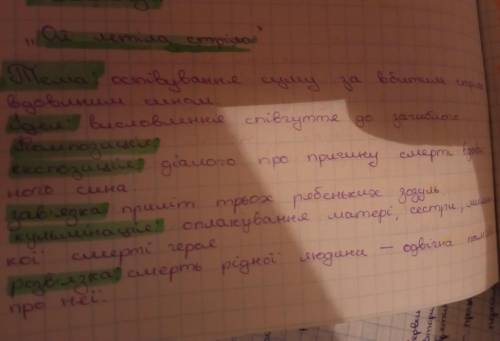 „Ой летіла стріла"
Тема: оспівування суму за вбитим
вдовиним сином.
Ідея: висловлення співчуття до загиблого
Композиція:
експозиція: діалого про причину смерті
ного сина.
зав'язка: приліт трьох рябеньких зозуль
кульмінація: оплакування матері, сестри,
кої смерті героя
розв'язка: смерть рідної людини — одвічна
про неї.